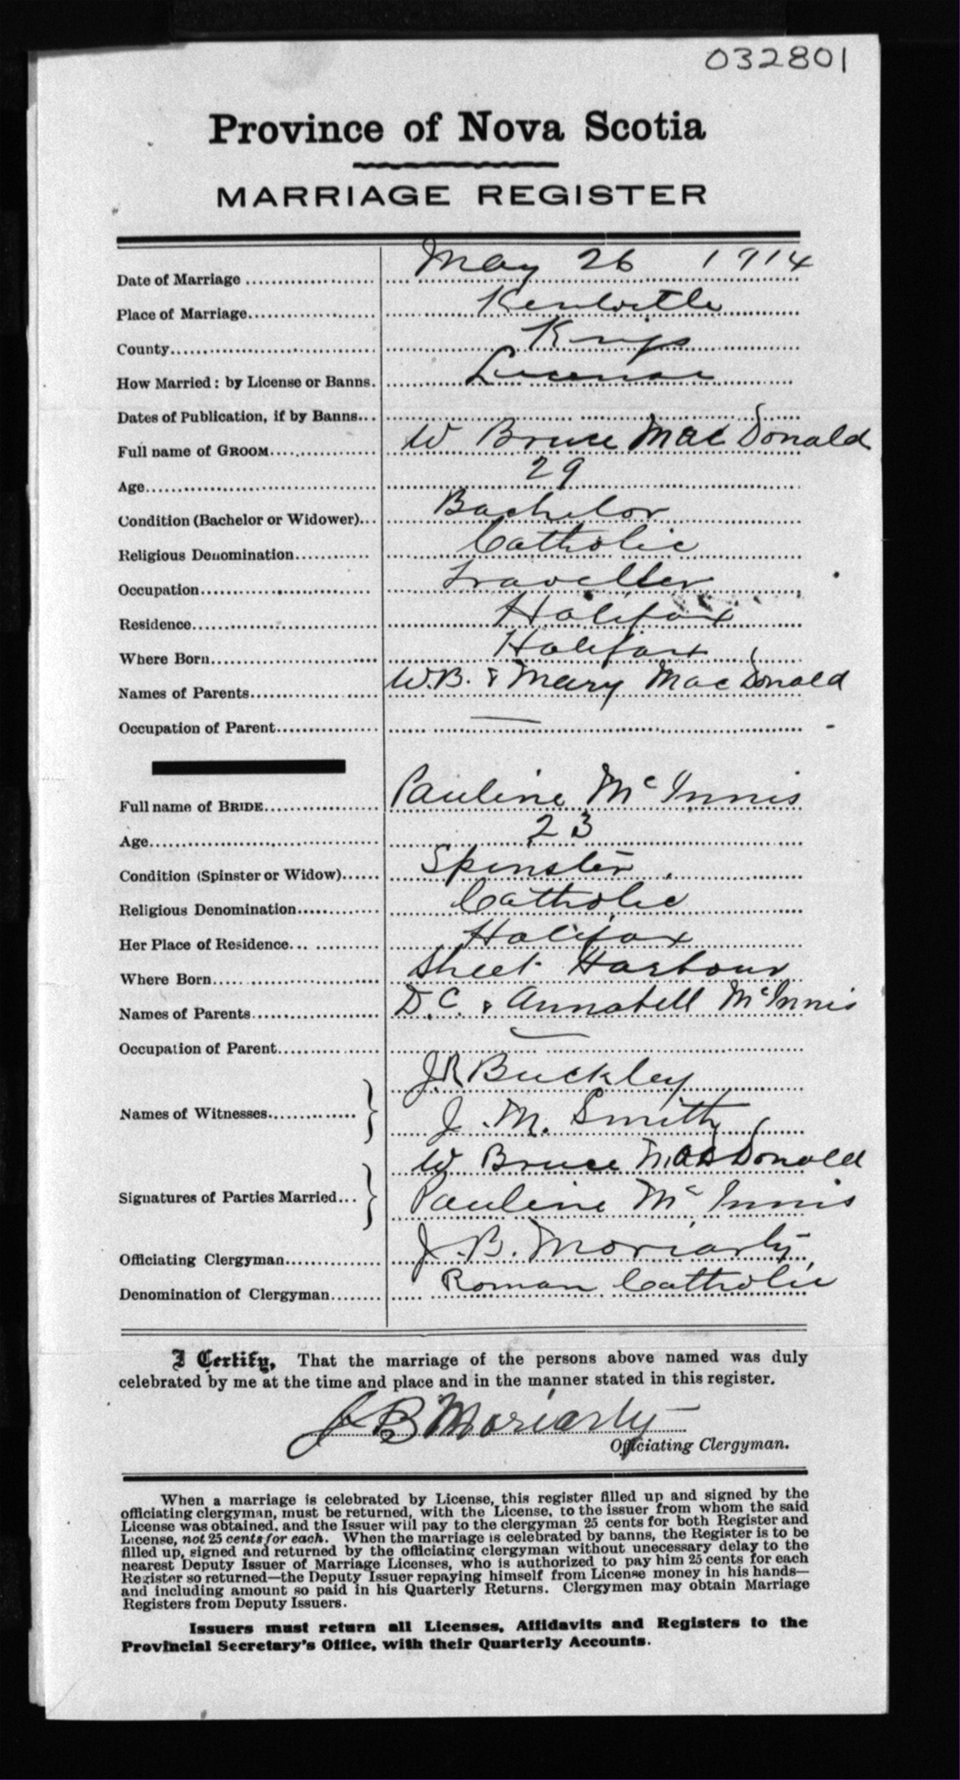 032801
Province of Nova Scotia
MARRIAGE REGISTER
Date of Marriage May 26 1914
Place of Marriage Kentville
County Kings
How Married: by License or Banns. License
Dates of Publication, if by Banns
Full name of GROOM W Bruce MacDonald
Age 29
Condition (Bachelor or Widower) Bachelor
Religious Denomination Catholic
Occupation Traveller
Residence Halifax
Where Born Halifax
Names of Parents W.B. & Mary MacDonald
Occupation of Parent —
Full name of BRIDE Pauline McInnis
Age 23
Condition (Spinster or Widow) Spinster
Religious Denomination Catholic
Her Place of Residence Halifax
Where Born Sheet Harbour
Names of Parents D.C. & Annabell McInnis
Occupation of Parent —
J R Buckley
Names of Witnesses
J. M. Smith
W Bruce MacDonald
Signatures of Parties Married
Pauline McInnis
Officiating Clergyman J. B. Moriarty
Denomination of Clergyman Roman Catholic
I Certify, That the marriage of the persons above named was duly
celebrated by me at the time and place and in the manner stated in this register.
J B Moriarty
Officiating Clergyman.
When a marriage is celebrated by License, this register filled up and signed by the
officiating clergyman, must be returned, with the License, to the issuer from whom the said
License was obtained, and the Issuer will pay to the clergyman 25 cents for both Register and
License, not 25 cents for each. When the marriage is celebrated by banns, the Register is to be
filled up, signed and returned by the officiating clergyman without unecessary delay to the
nearest Deputy Issuer of Marriage Licenses, who is authorized to pay him 25 cents for each
Register so returned—the Deputy Issuer repaying himself from License money in his hands—
and including amount so paid in his Quarterly Returns. Clergymen may obtain Marriage
Registers from Deputy Issuers.
Issuers must return all Licenses, Affidavits and Registers to the
Provincial Secretary's Office, with their Quarterly Accounts.